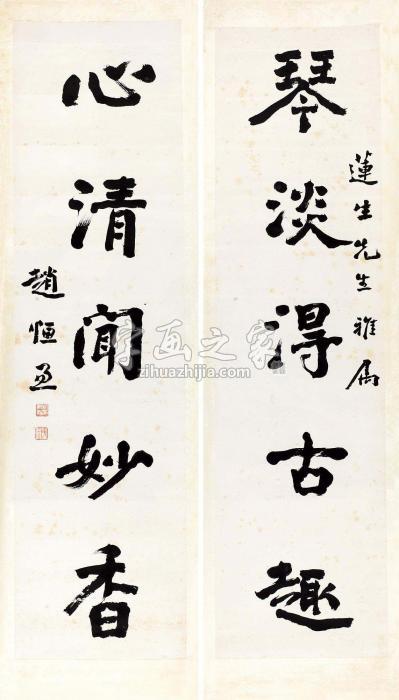 蓮生先生雅属
琴淡得古趣
心清聞妙香
趙恒惖
字画之家
zihuazhijia.com